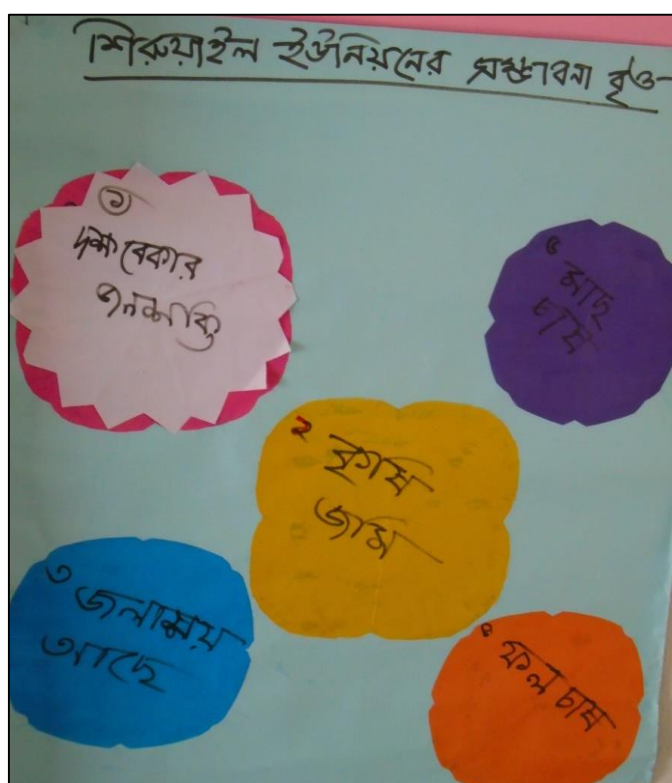 শিরুয়াইল ইউনিয়নের সম্ভাবনা বৃত্ত
১
দক্ষ বেকার
জনশক্তি
৫ মাছ
চাষ
২ কৃষি
জমি
৩ জলাশয়
আছে
৪ ফল চাষ